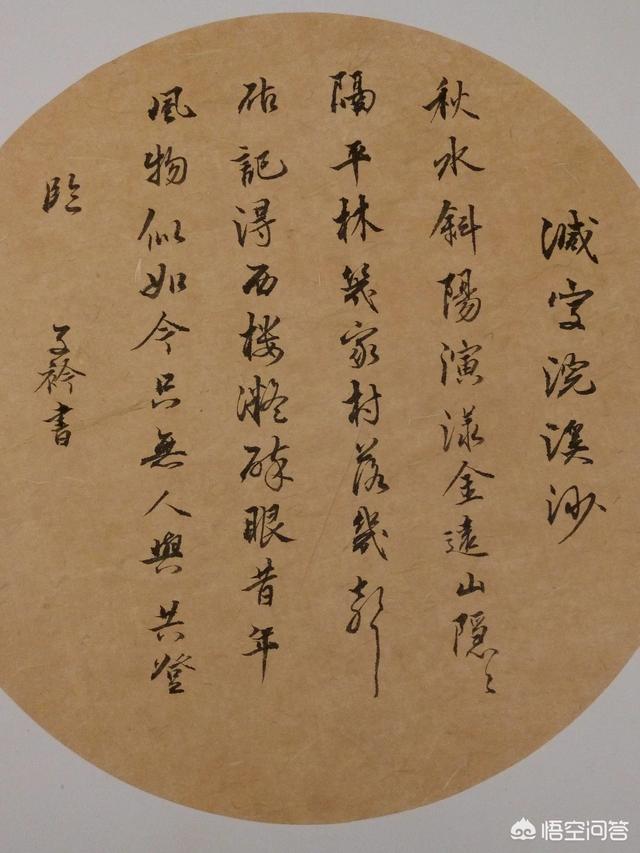 減字浣溪沙
秋水斜陽演漾金遠山隱々
隔平林幾家村落幾聲
砧記得西楼凝醉眼昔年
風物似如今只無人與共登
臨
子衿書
悟空问答